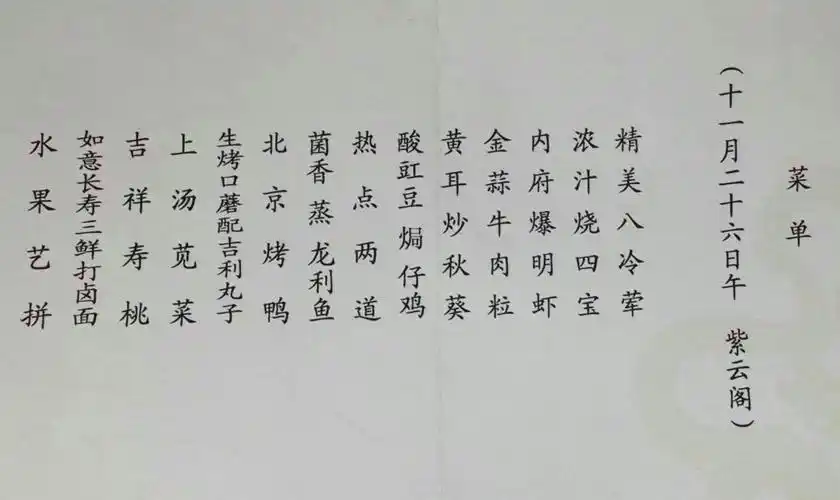 菜单
（十一月二十六日午　紫云阁）
精美八冷荤
浓汁烧四宝
内府爆明虾
金蒜牛肉粒
黄耳炒秋葵
酸豇豆焗仔鸡
热点两道
菌香蒸龙利鱼
北京烤鸭
生烤口蘑配吉利丸子
上汤苋菜
吉祥寿桃
如意长寿三鲜打卤面
水果艺拼